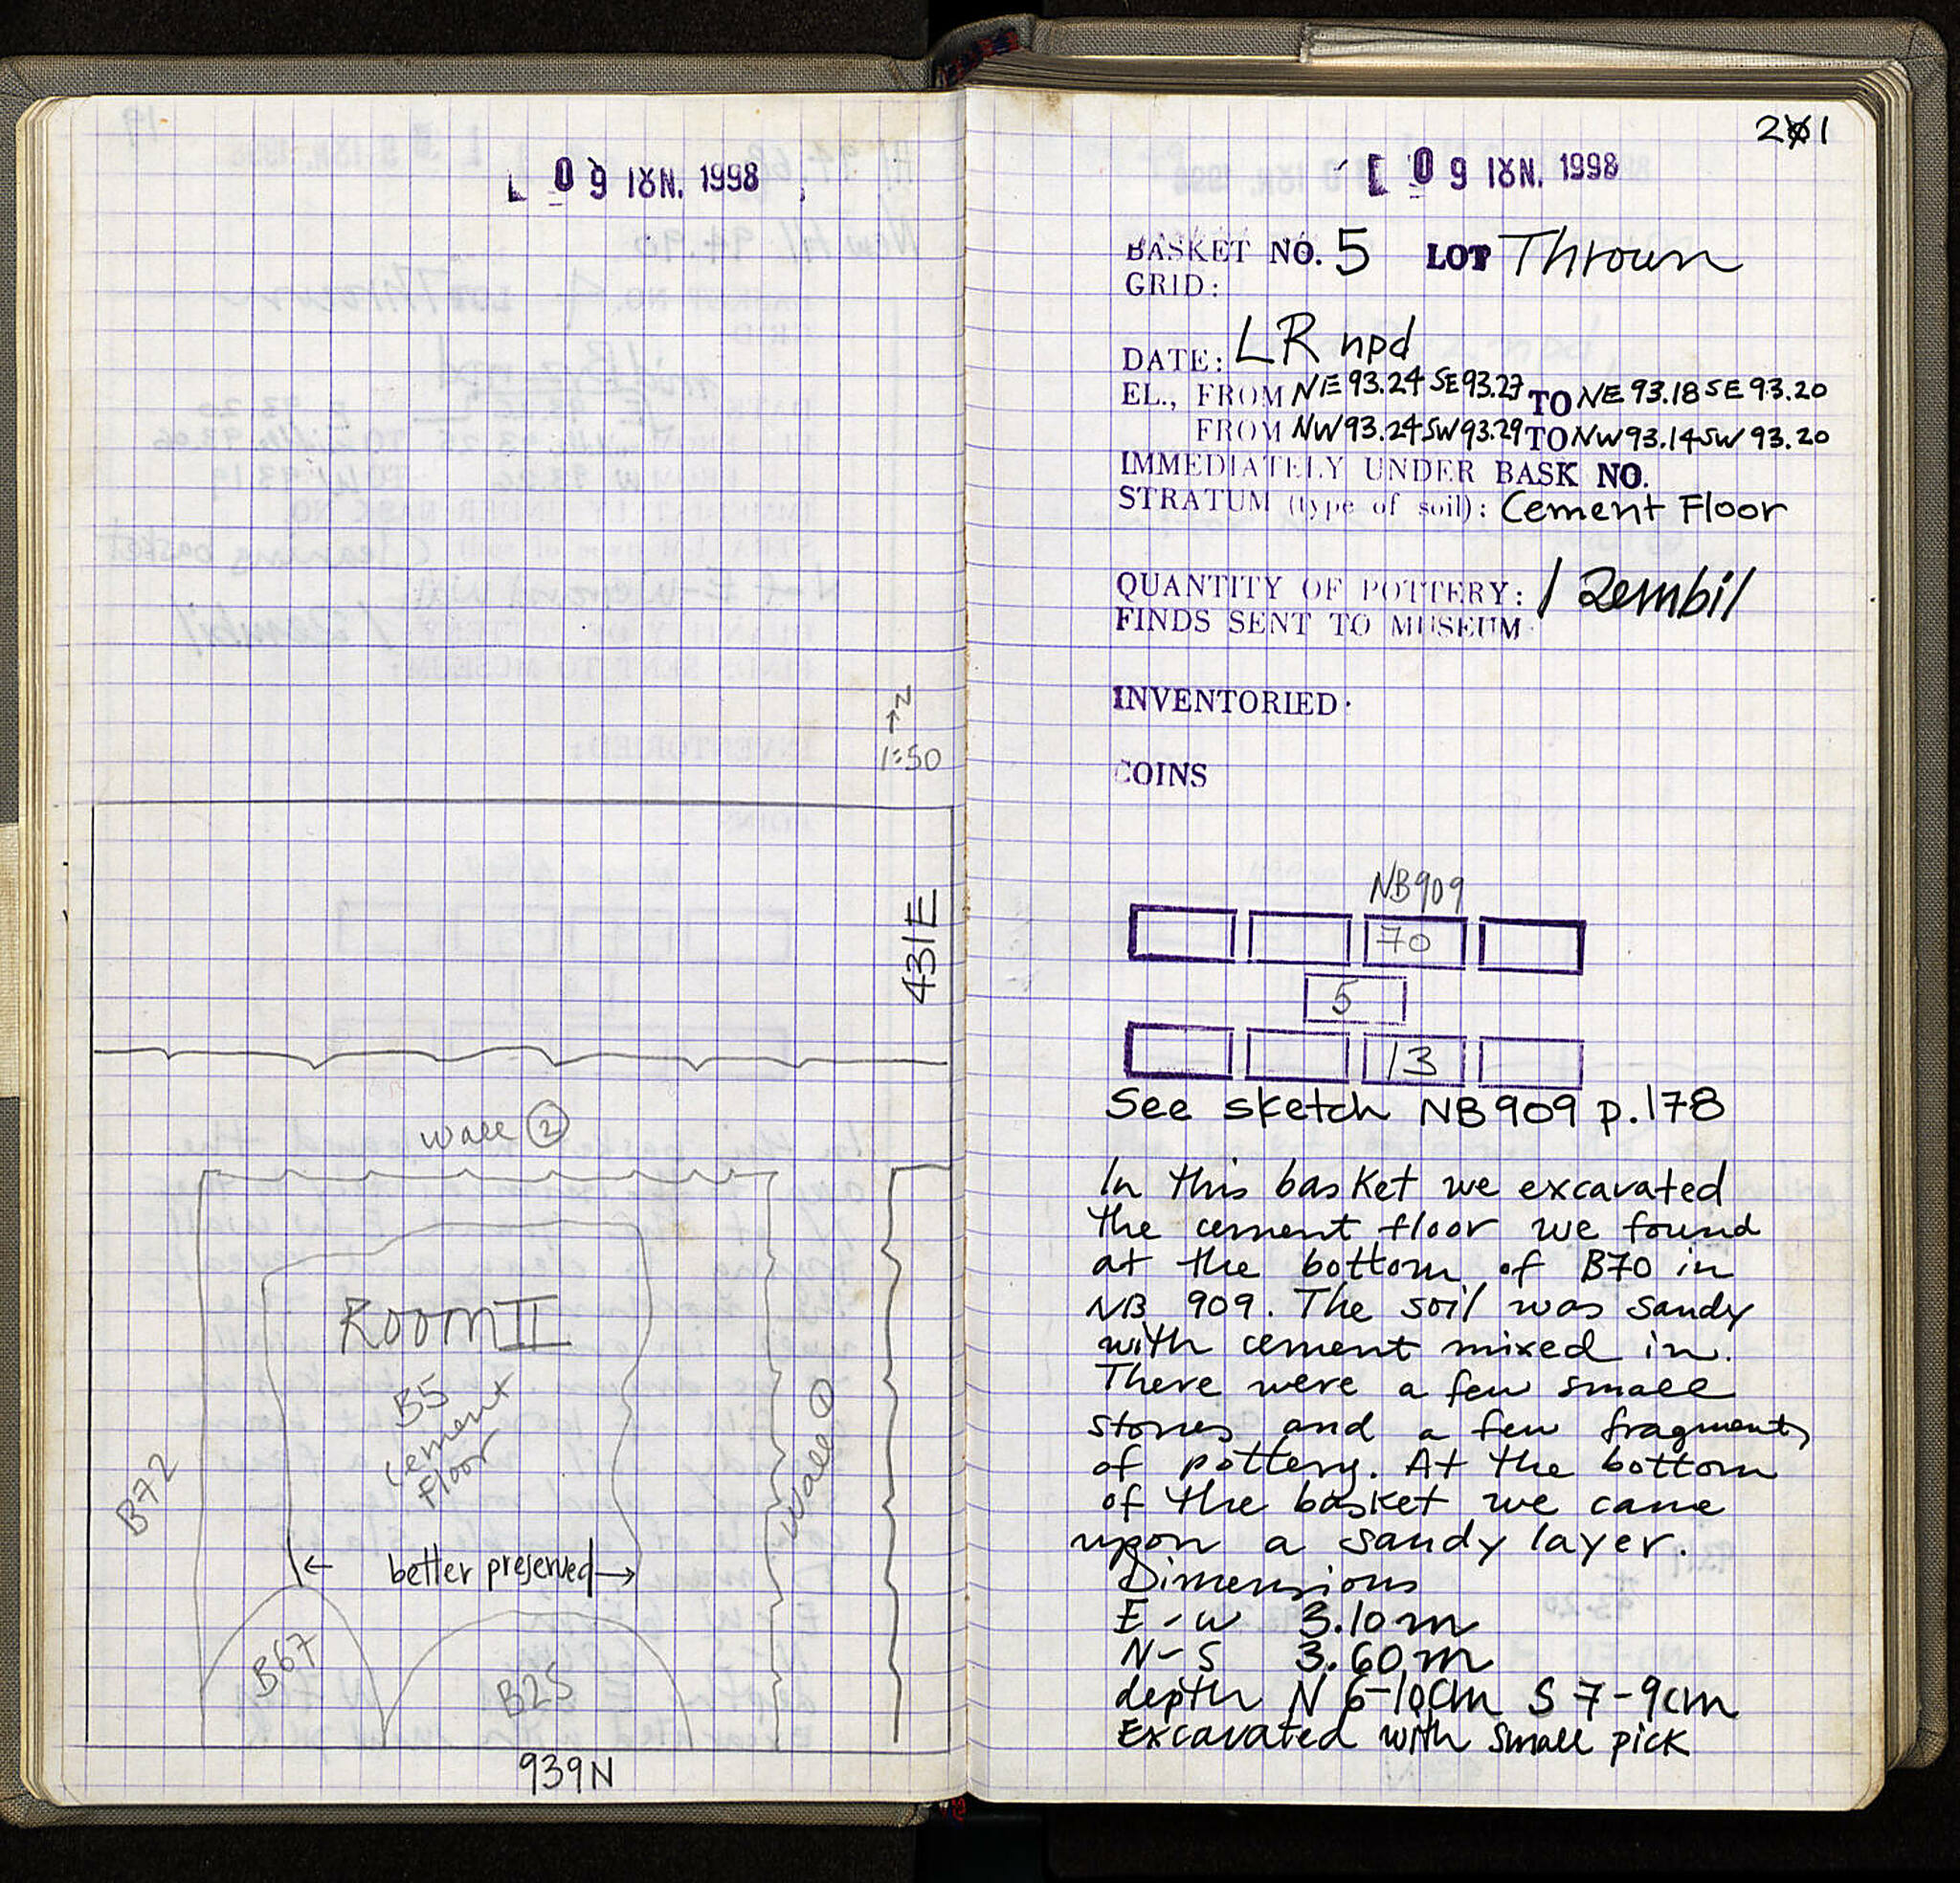 09 ΙΟΥΝ. 1998
N
1:50
431E
Wall 2
Room II
B5
Cement
Floor
Wall 1
B72
← better preserved →
B67
B25
939N
201
09 ΙΟΥΝ. 1998
BASKET NO. 5 LOT Thrown
GRID:
DATE: LR npd
EL., FROM NE 93.24 SE 93.27 TO NE 93.18 SE 93.20
FROM NW 93.24 SW 93.29 TO NW 93.14 SW 93.20
IMMEDIATELY UNDER BASK NO.
STRATUM (type of soil): Cement Floor
QUANTITY OF POTTERY: 1 Zembil
FINDS SENT TO MUSEUM
INVENTORIED:
COINS
NB909
70
5
13
See sketch NB909 p.178
In this basket we excavated
the cement floor we found
at the bottom of B70 in
NB 909. The soil was sandy
with cement mixed in.
There were a few small
stones and a few fragments
of pottery. At the bottom
of the basket we came
upon a sandy layer.
Dimensions
E-W 3.10m
N-S 3.60m
depth N 6-10cm S 7-9cm
Excavated with small pick